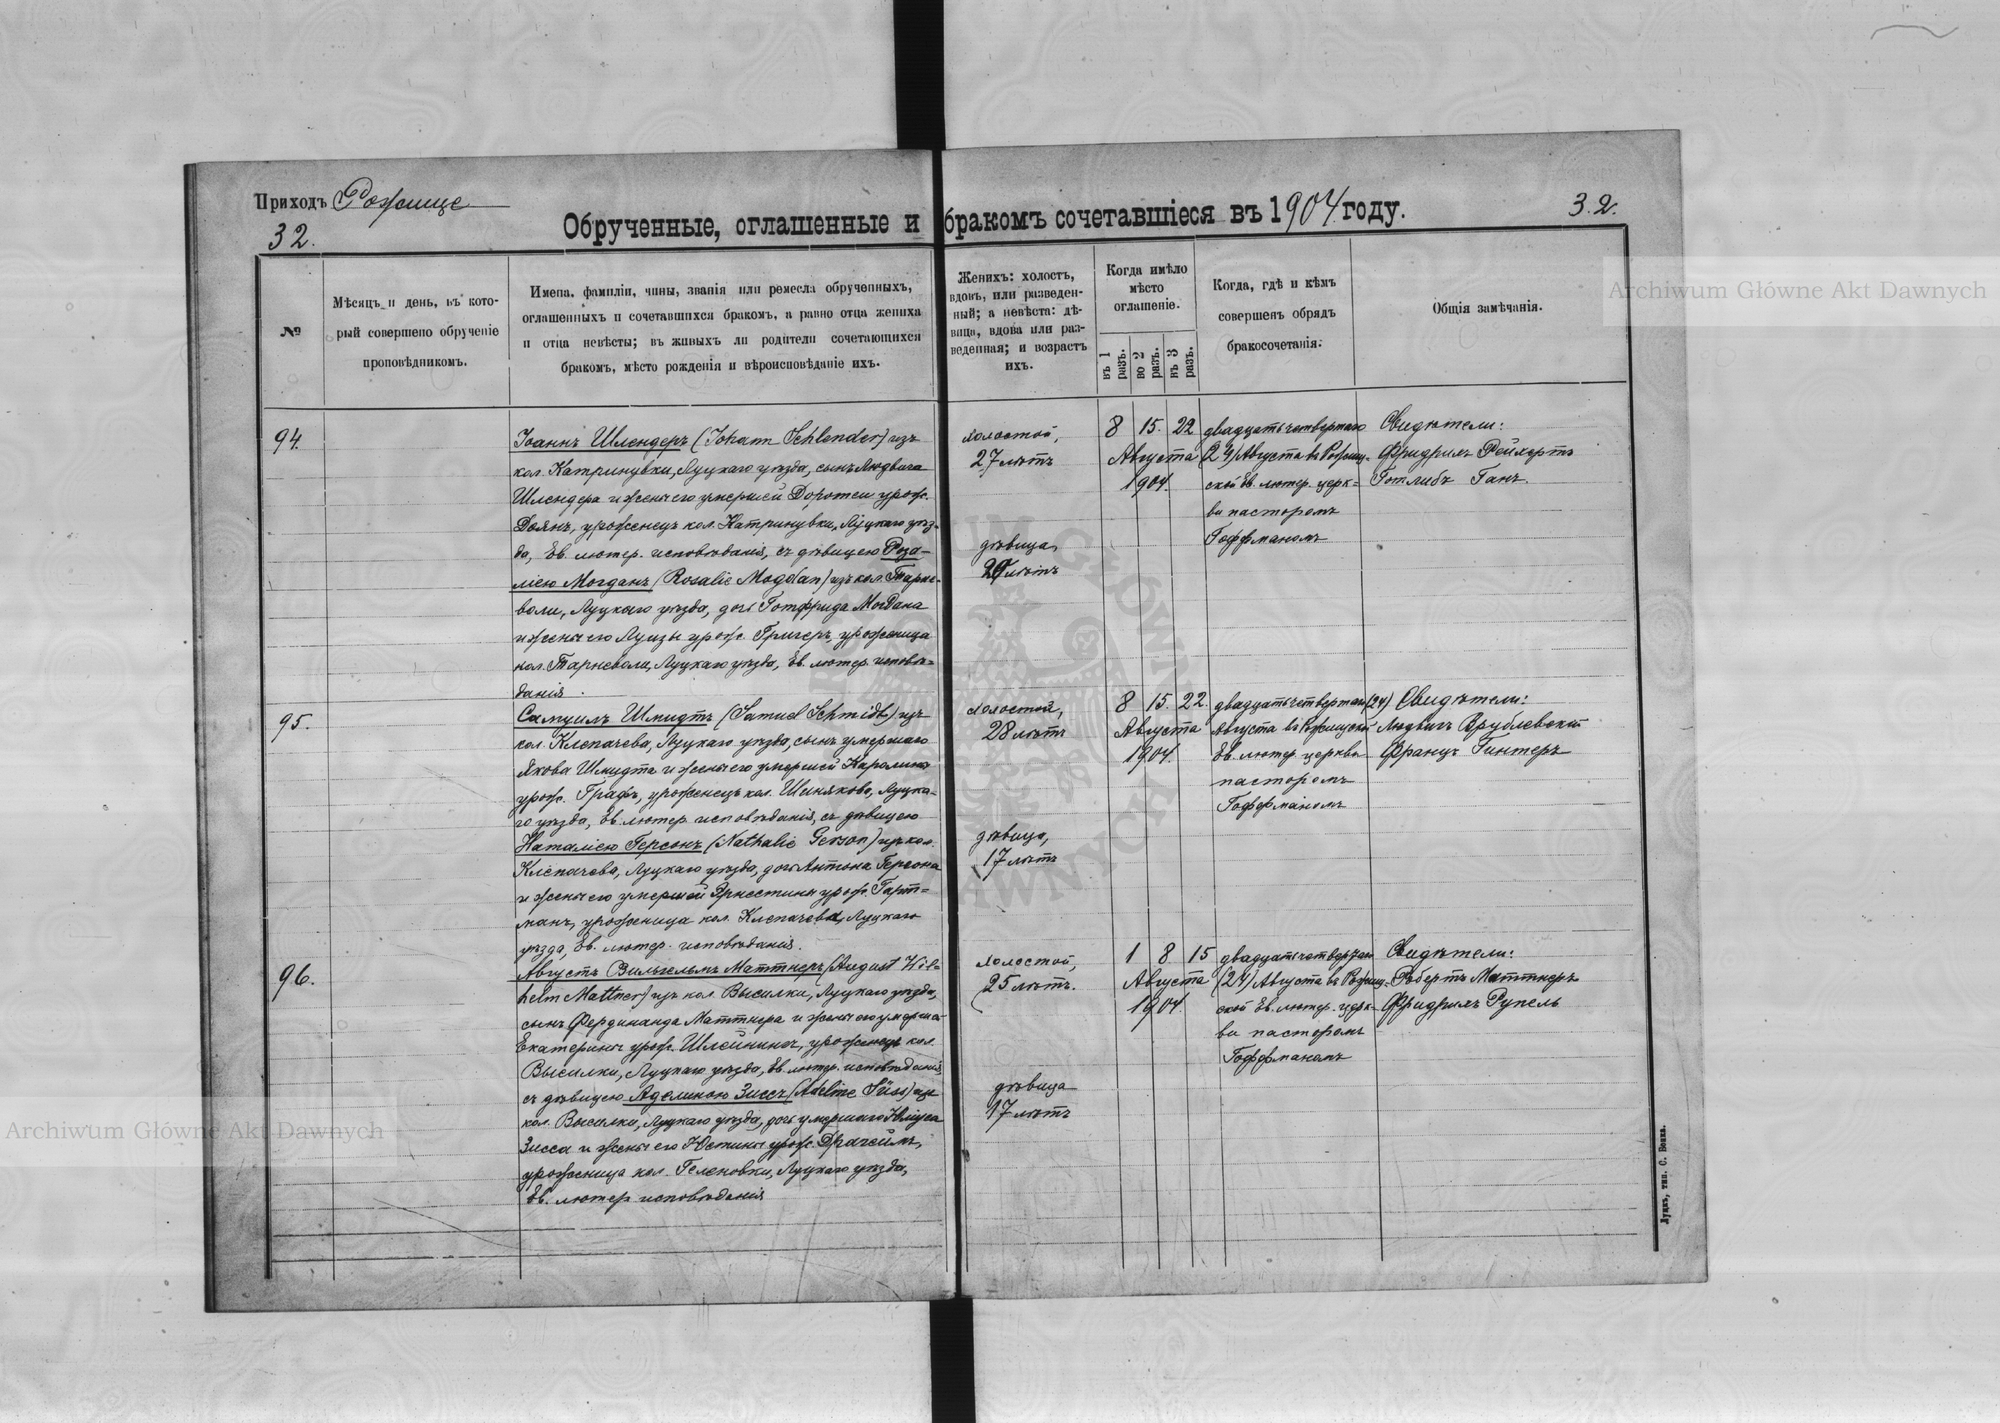 Приходъ Рожище
32.
Обрученные, оглашенные и бракомъ сочетавшіеся въ 1904 году.
3.2.
№
Мѣсяцъ и день, въ кото-
рый совершено обрученіе
проповѣдникомъ.
Имена, фамиліи, чины, званія или ремесла обрученныхъ,
оглашенныхъ и сочетавшихся бракомъ, а равно отца жениха
и отца невѣсты; въ живыхъ ли родители сочетающихся
бракомъ, мѣсто рожденія и вѣроисповѣданіе ихъ.
Женихъ: холостъ,
вдовъ, или разведен-
ный; а невѣста: дѣ-
вица, вдова или раз-
веденная; и возрастъ
ихъ.
Когда имѣло
мѣсто
оглашеніе.
въ 1 разъ.
во 2 разъ.
въ 3 разъ.
Когда, гдѣ и кѣмъ
совершенъ обрядъ
бракосочетанія.
Общія замѣчанія.
94.
Іоаннъ Шлендеръ (Johann Schlender) изъ
кол. Катринувки, Луцкаго уѣзда, сынъ Людвига
Шлендера и жены его умершей Доротеи урож.
Доянъ, уроженецъ кол. Катринувки, Луцкаго уѣз-
да, Ев. лютер. исповѣданія, съ дѣвицею Роза-
ліею Могданъ (Rosalie Mogdan) изъ кол. Тарне-
воли, Луцкаго уѣзда, дочь Готфрида Могдана
и жены его Луизы урож. Григеръ, уроженица
кол. Тарневоли, Луцкаго уѣзда, Ев. лютер. исповѣ-
данія.
холостой,
27 лѣтъ
дѣвица,
лѣтъ
8 15. 22
Августа
1904.
двадцать четвертаго
(24) Августа въ Рожищ-
ской Ев. лютер. церк-
ви пасторомъ
Гоффманомъ
Свидѣтели:
Фридрихъ Рейхертъ
Готлибъ Ганъ.
95.
Самуилъ Шмидтъ (Samuel Schmidt) изъ
кол. Клепачева, Луцкаго уѣзда, сынъ умершаго
Якова Шмидта и жены его умершей Каролины
урож. Графъ, уроженецъ кол. Шинякова, Луцка-
го уѣзда, Ев. лютер. исповѣданія, съ дѣвицею
Наталіею Герсонъ (Nathalie Gerson) изъ кол.
Клепачева, Луцкаго уѣзда, дочь Антона Герсона
и жены его умершей Эрнестины урож. Гарт-
манъ, уроженица кол. Клепачева, Луцкаго
уѣзда, Ев. лютер. исповѣданія.
холостой,
28 лѣтъ
дѣвица,
17 лѣтъ
8 15. 22.
Августа
1904.
двадцать четвертаго (24)
Августа въ Рожищской
Ев. лютер. церкви
пасторомъ
Гоффманомъ
Свидѣтели:
Людвигъ Врублевскій
Францъ Гинтеръ
96.
Августъ Вильгельмъ Маттнеръ (August Wil-
helm Mattner) изъ кол. Высилки, Луцкаго уѣзда,
сынъ Фердинанда Маттнера и жены его умершей
Екатерины урож. Шлейнингъ, уроженецъ кол.
Высилки, Луцкаго уѣзда, Ев. лютер. исповѣданія
съ дѣвицею Аделиною Зиссъ (Adeline Süss) изъ
кол. Высилки, Луцкаго уѣзда, дочь умершаго Юліуса
Зисса и жены его Юстины урож. Драгеймъ,
уроженица кол. Геленовки, Луцкаго уѣзда,
Ев. лютер. исповѣданія
холостой,
25 лѣтъ.
дѣвица
17 лѣтъ
1 8 15
Августа
1904.
двадцать четвертаго
(24) Августа въ Рожищ-
ской Ев. лютер. церк-
ви пасторомъ
Гоффманомъ
Свидѣтели:
Робертъ Маттнеръ
Фридрихъ Рупель
Луцкъ, тип. С. Бокка.
Archiwum Główne Akt Dawnych
Archiwum Główne Akt Dawnych